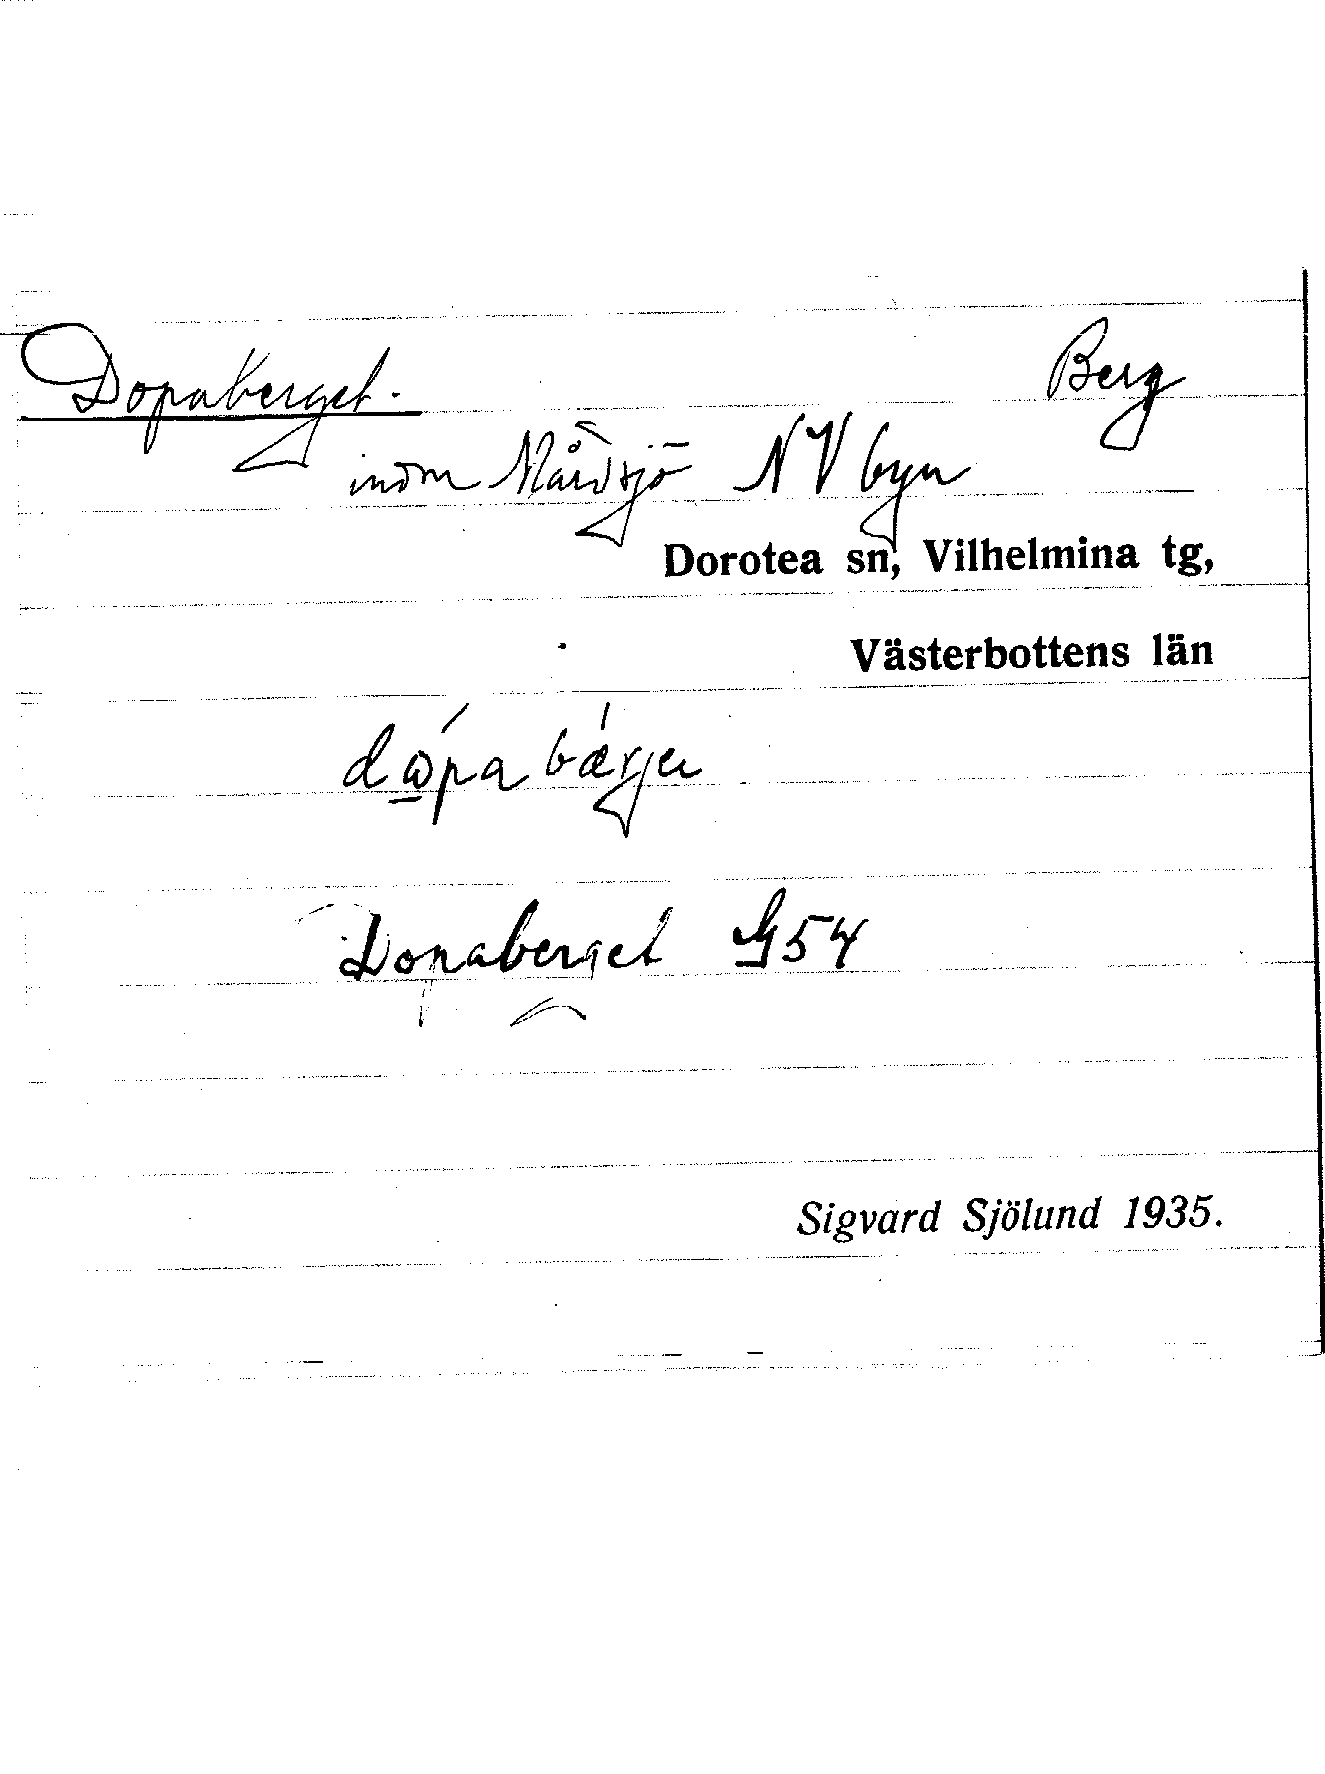 Dopaberget. Berg
inom Mårdsjö NV byn
Dorotea sn, Vilhelmina tg,
Västerbottens län
Dopaberget G54
Sigvard Sjölund 1935.